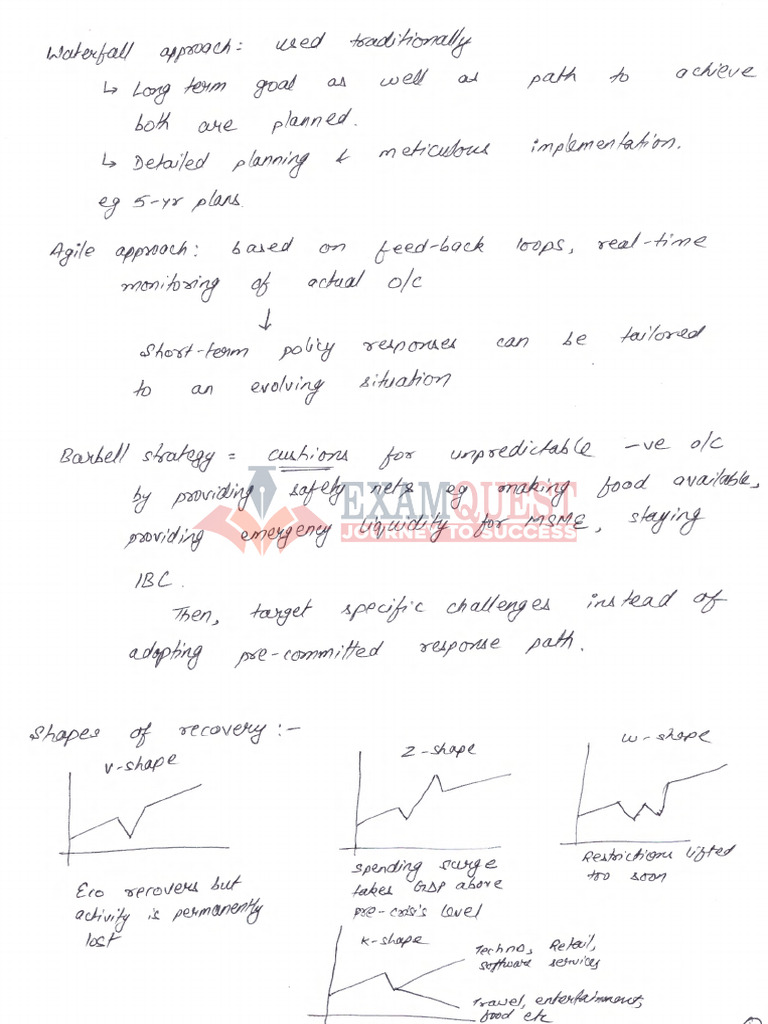 Waterfall approach: used traditionally
↳ Long term goal as well as path to achieve
both are planned.
↳ Detailed planning & meticulous implementation.
eg 5-yr plans.
Agile approach: based on feed-back loops, real-time
monitoring of actual o/c
↓
Short-term policy responses can be tailored
to an evolving situation
Barbell strategy = cushions for unpredictable -ve o/c
by providing safety nets eg making food available,
providing emergency liquidity for MSME, staying
IBC.
EXAMQUEST
JOURNEY TO SUCCESS
Then, target specific challenges instead of
adopting pre-committed response path.
Shapes of recovery :-
V-shape
Z-shape
W-shape
Eco recovers but
activity is permanently
lost
Spending surge
takes GDP above
pre-crisis level
Restrictions lifted
too soon
K-shape
Techno, Retail,
software services
Travel, entertainment,
food etc